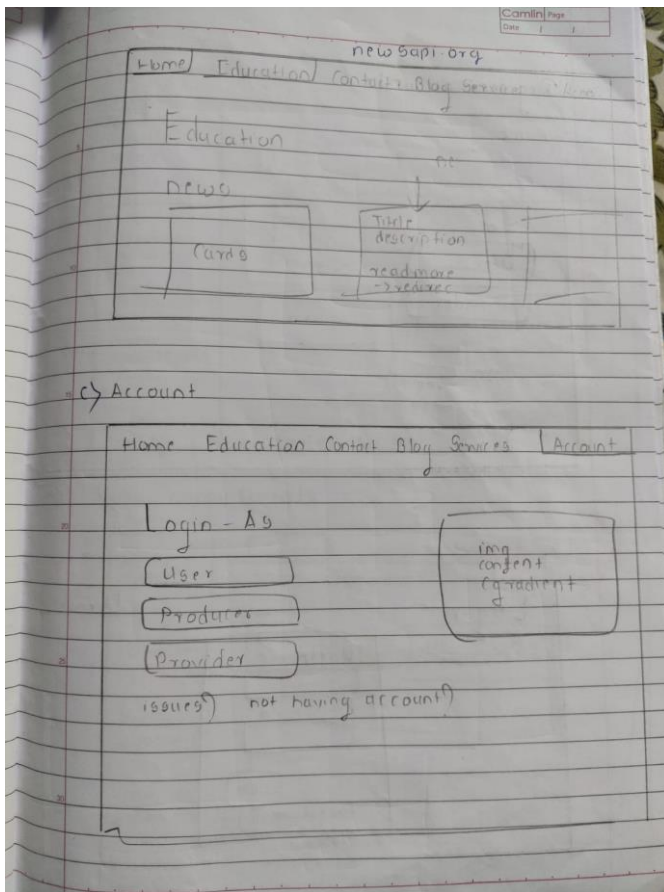 Camlin Page
Date / /
newsapi.org
Home Education Contact Blog Services
Education
news
Cards
Title
description
readmore
→ redirec
c) Account
Home Education Contact Blog Services Account
Login - As
User
Producer
Provider
img
content
cgradient
issues? not having account?